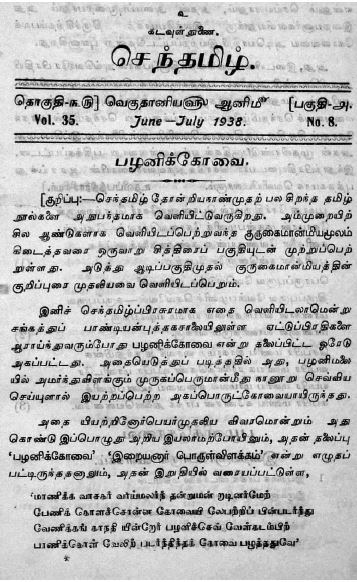 உ
கடவுள் துணை.
செந்தமிழ்.
தொகுதி-௩௫] வெகுதானியஞ ஆனிமீ [பகுதி-௮.
Vol. 35. June—July 1938. No. 8.
பழனிக்கோவை.
[குறிப்பு:—செந்தமிழ் தோன்றியநாண்முதற் பல சிறந்த தமிழ்
நூல்களை அநுபந்தமாக வெளியிட்டுவருகிறது. அம்முறையிற்
சில ஆண்டுகளாக வெளியிடப்பெற்றுவந்த குருகைமான்மியமூலம்
கிடைத்தவரை ஒருவாறு சித்திரைப் பகுதியுடன் முற்றுப்பெற்
றுள்ளது. அடுத்து ஆடிப்பகுதிமுதல் குருகைமான்மியத்தின்
குறிப்புரை முதலியவை வெளியிடப்பெறும்.
இனிச் செந்தமிழ்ப்பிரசுரமாக எதை வெளியிடலாமென்று
சங்கத்துப் பாண்டியன்புத்தகசாலையிலுள்ள ஏட்டுப்பிரதிகளை
ஆராய்ந்துவரும்போது பழனிக்கோவை என்று தலைப்பிட்ட ஒரேடு
அகப்பட்டது. அதையெடுத்துப் படித்ததில் அது, பழனிமலை
யில் அமர்ந்துவிளங்கும் முருகப்பெருமான்மீது நானூறு செவ்விய
செய்யுளால் இயற்றப்பெற்ற அகப்பொருட்கோவையாயிருந்தது.
அதை யியற்றினோர்பெயர்முதலிய விவரமொன்றும் அது
கொண்டு இப்பொழுது அறிய இயலாமற்போயினும், அதன் தலைப்பு
'பழனிக்கோவை' 'இறையனூர் பொருள்விளக்கம்' என்று எழுதப்
பட்டிருந்ததனாலும், அதன் இறுதியில் வரையப்பட்டுள்ள,
'மாணிக்க வாசகர் வார்மலர்ந் தன்றுமன் றாடினார்மேற்
பேணிக் கொளச்சொன்ன கோவையி லேபற்றிப் பின்படர்ந்து
வேணிக்கங் காநதி யின்றேர் பழனிச்செவ் வேள்கடம்பிற்
பாணிக்கொள் வேலிற் படர்ந்திந்தக் கோவை பழுத்ததுவே'
*